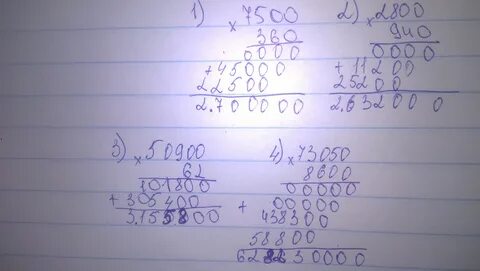 1) × 7500
360
0000
+ 45000
22500
2.700000
2) × 2800
940
0000
+ 11200
25200
2.632000
3) × 50900
62
101800
+ 305400
3.155800
4) × 73050
8600
00000
+ 00000
438300
58800
628230000